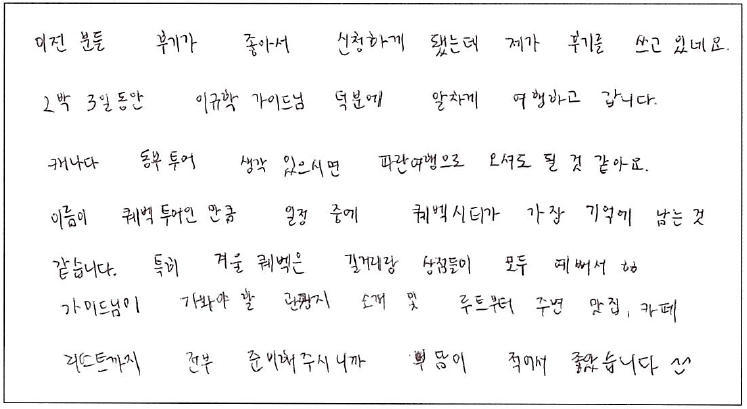 이전 분들 후기가 좋아서 신청하게 됐는데 제가 후기를 쓰고 있네요.
2박 3일동안 이규학 가이드님 덕분에 알차게 여행하고 갑니다.
캐나다 동부 투어 생각 있으시면 파란여행으로 오셔도 될 것 같아요.
이름이 퀘벡 투어인 만큼 일정 중에 퀘벡시티가 가장 기억에 남는 것
같습니다. 특히 겨울 퀘벡은 길거리랑 상점들이 모두 예뻐서 ㅎㅎ
가이드님이 가봐야 할 관광지 소개 및 루트부터 주변 맛집, 카페
리스트까지 전부 준비해주시니까 부담이 적어서 좋았습니다 ^^